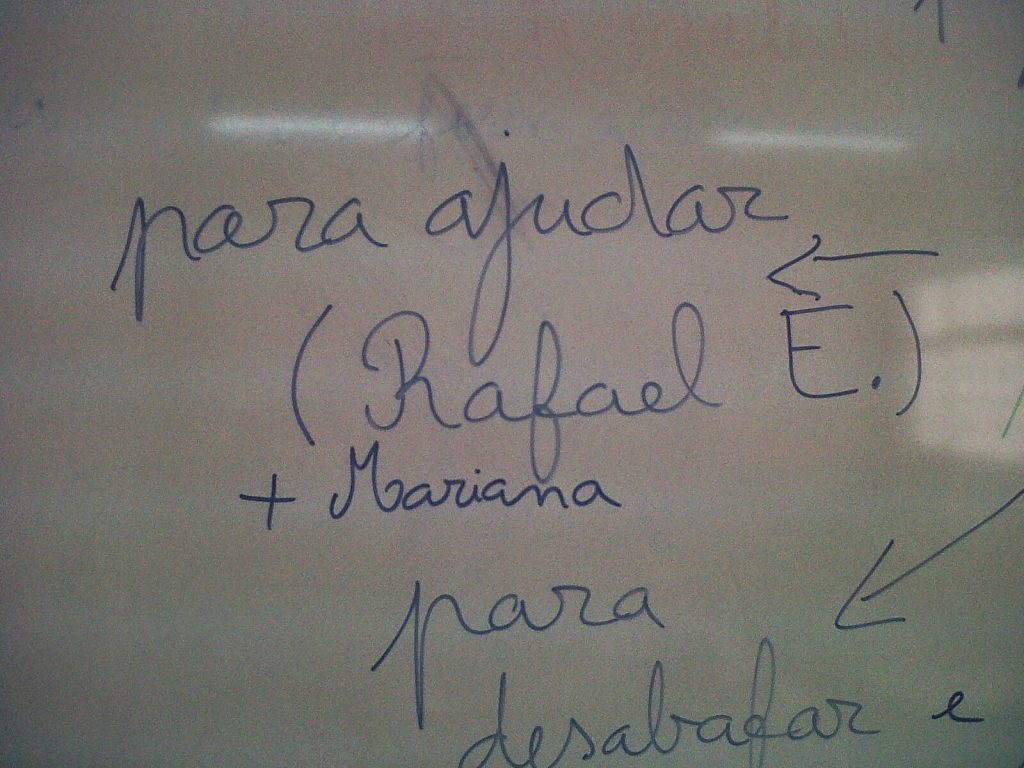 para ajudar
(Rafael E.)
+ Mariana
para
desabafar e